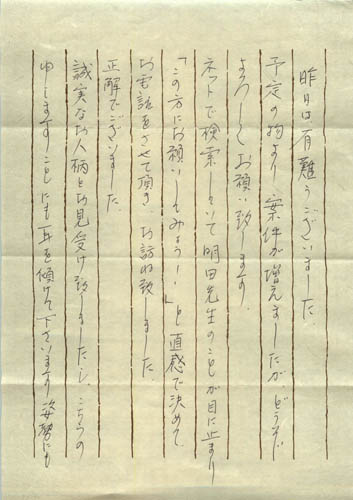 昨日は有難うございました。
予定の物より、案件が増えましたが、どうぞ
よろしくお願い致します。
ネットで検索していて明田先生のことが目に止まり
「この方にお願いしてみよう!!」と直感で決めて、
お電話をさせて頂き、お訪ね致しました。
正解でございました。
誠実なお人柄とお見受け致しましたし、こちらの
申しますことにも耳を傾けて下さいます姿勢にも